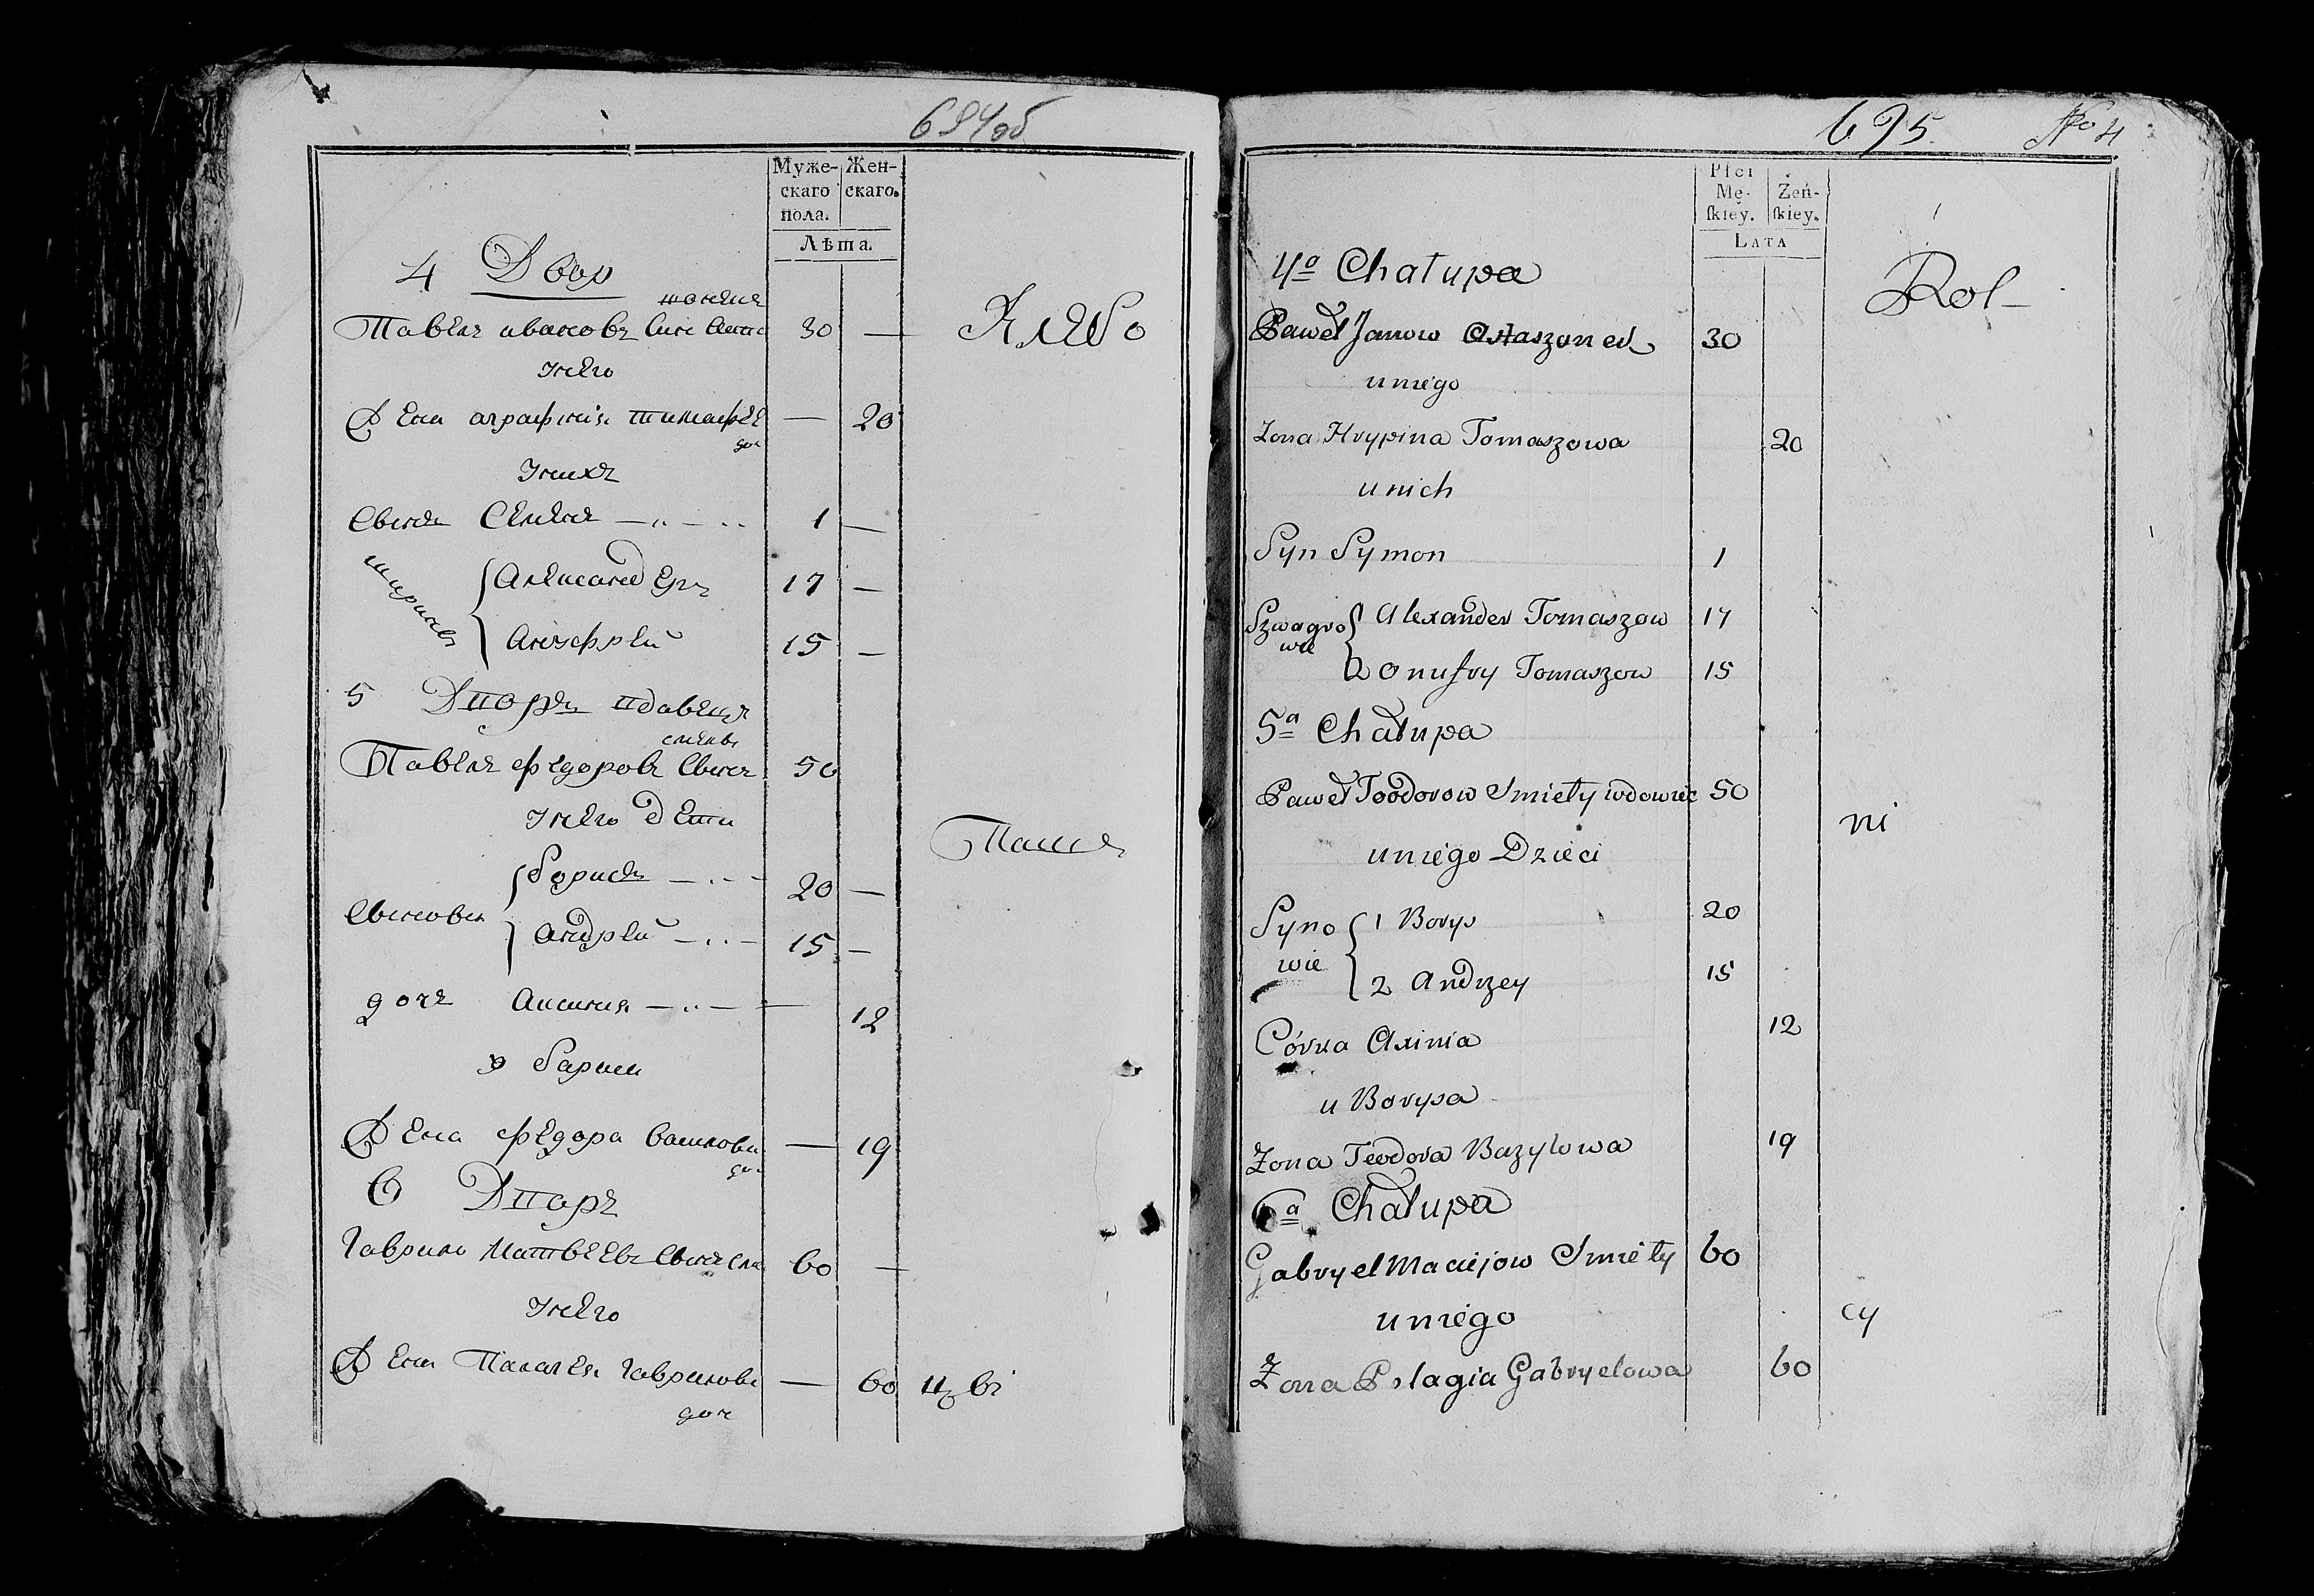 694об
Муже-
скаго
пола.
Жен-
скаго.
Лѣта.
4 Двор
Павел ивановъ
30 —
Хлѣбо
Унего
Жена аграфиня
— 20
доч
Унихъ
Сынъ Семенъ
1 —
шурины
Александеръ
17 —
Анофрей
15 —
5 Дворъ вдовецъ
Павелъ федоровъ
50
Унего дети
Паш
Сыновья
Борисъ
20 —
Андрей
15 —
дочь Аксиния
12
у Бориса
Жена федора
— 19
6 Дворъ
Гаврило Матвеевъ
60 —
Унего
Жена Палагея Гаврилова
доч
— 60
цы
695. No 4
Płci
Mę-
ſkiey.
Żeń-
ſkiey.
Lata
4a Chałupa
Rol-
Paweł Janow Astaszonek 30
u niego
Zona Hrypina Tomaszowa 20
u nich
Syn Symon 1
Szwagro
wie
Alexander Tomaszow 17
2 Onufry Tomaszow 15
5a Chałupa
Paweł Teodorow Smiety wdowiec 50
ni
u niego Dzieci
Syno
wie
1 Borys 20
2 Andrzey 15
Córka Axinia 12
u Borysa
Zona Teodora Bazylowa 19
6a Chałupa
Gabryel Maciejow Smiety 60
u niego
cy
Żona Pelagia Gabryelowa 60